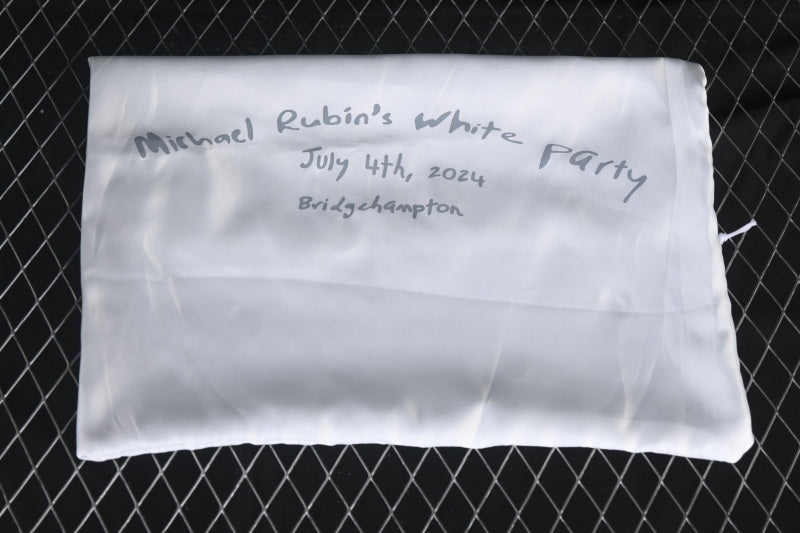 Michael Rubin's White Party
July 4th, 2024
Bridgehampton